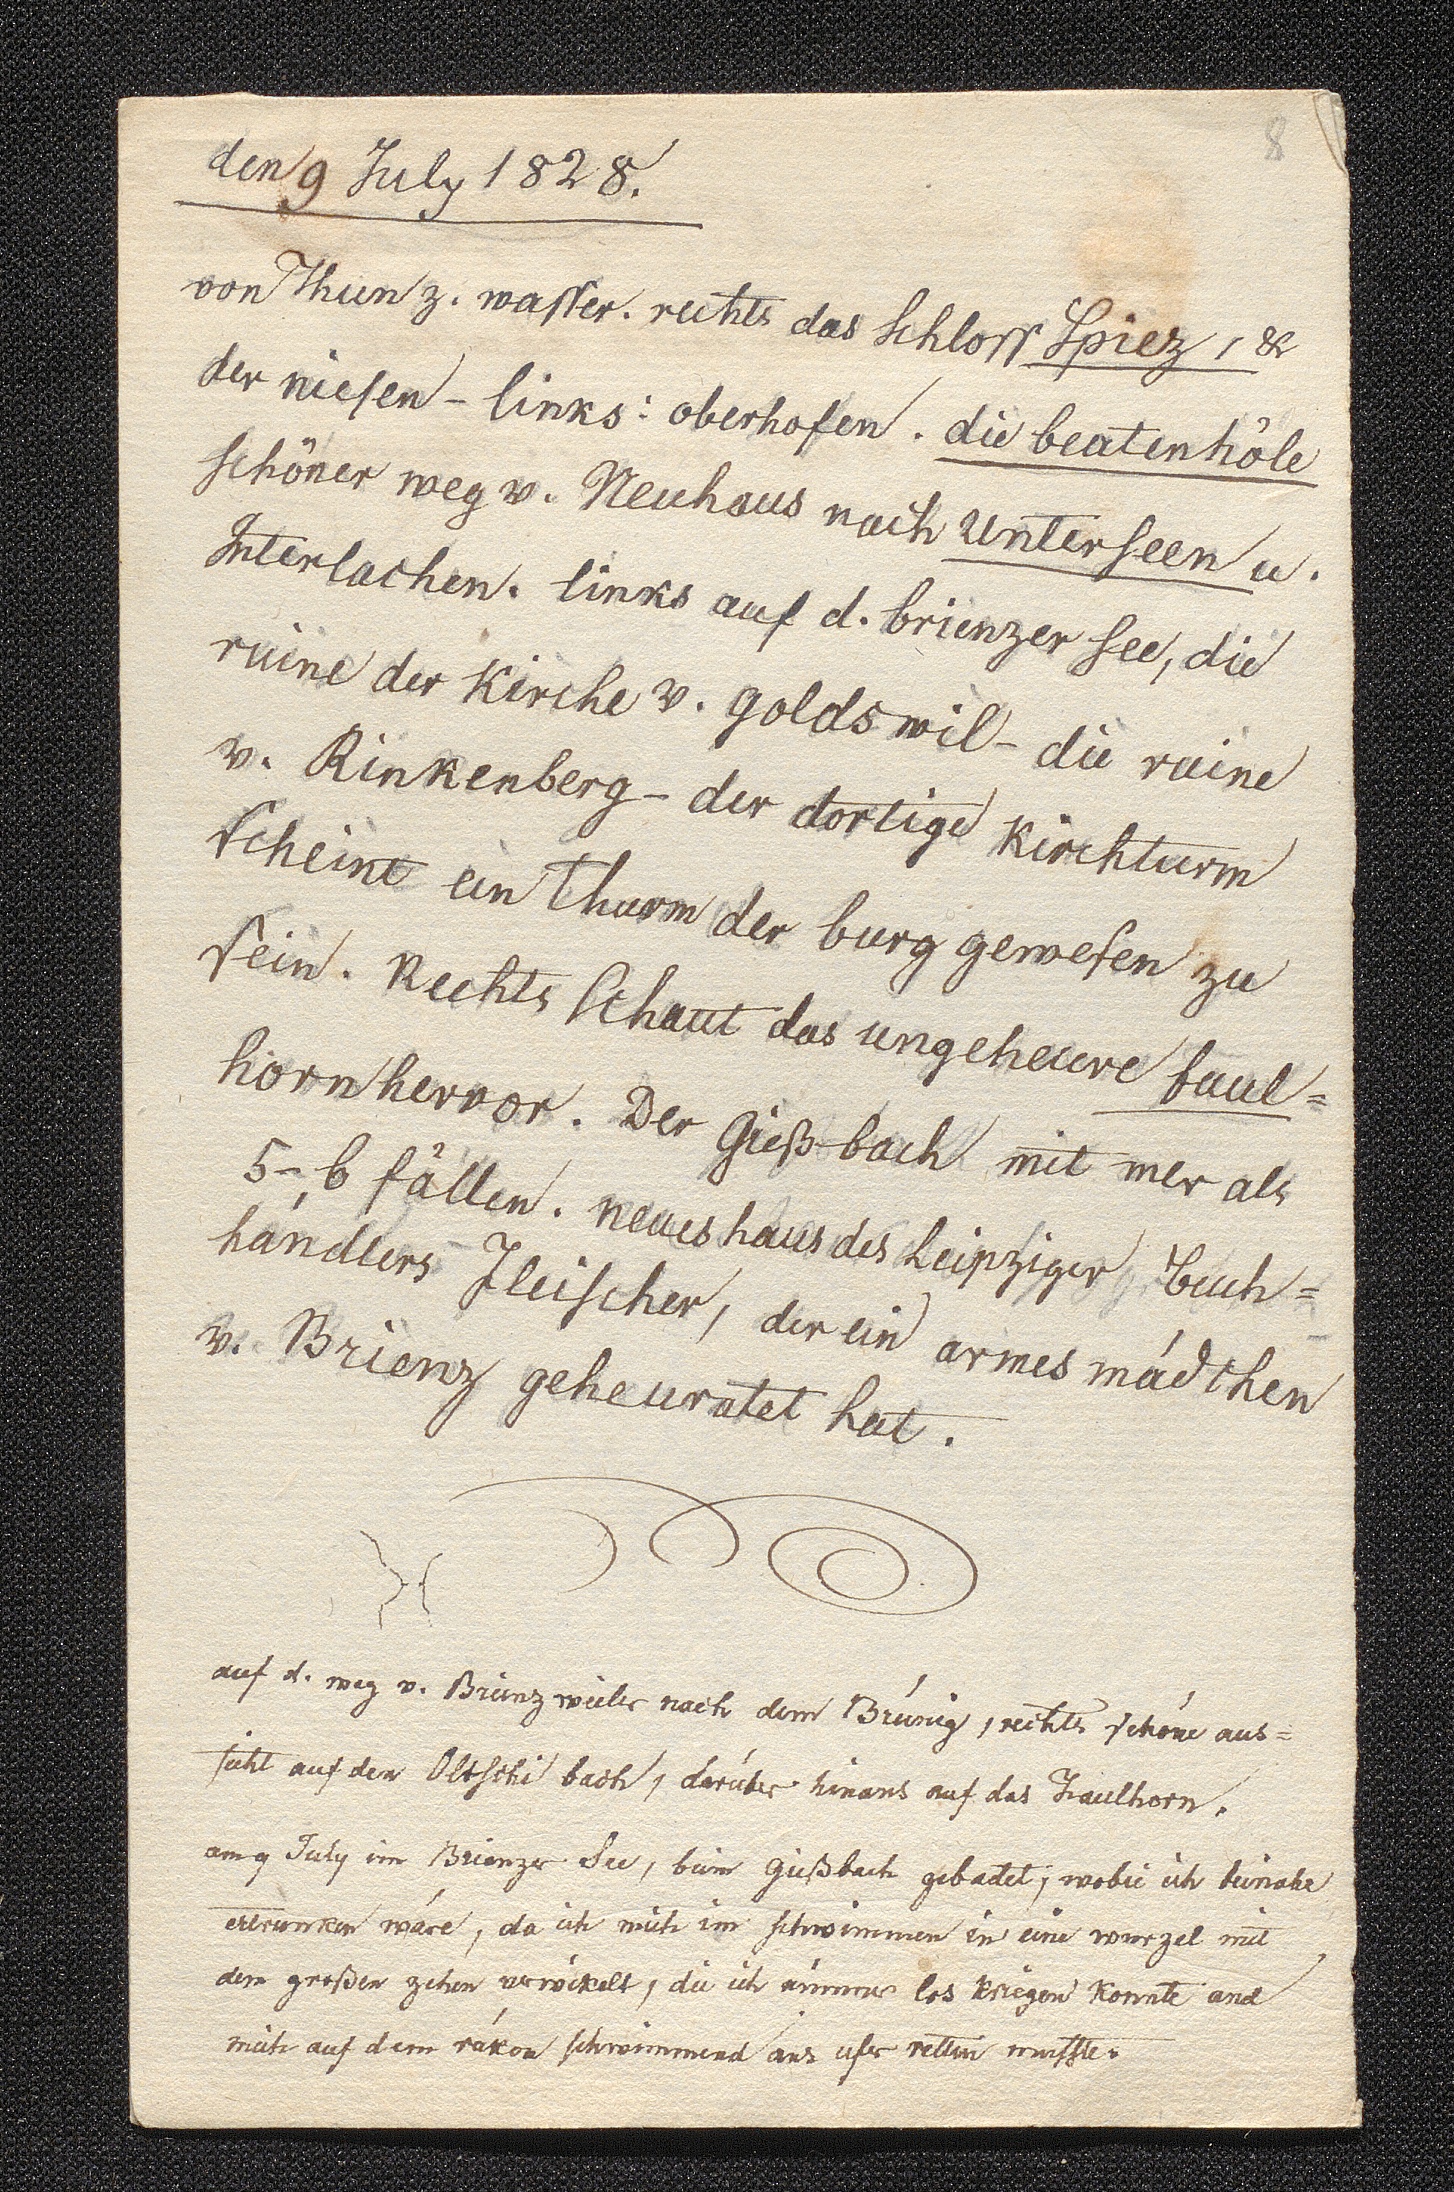 8
den 9 July 1828.
von Thun z. wasser. rechts das Schloss Spiez, &
der niesen - links: oberhofen. die beatenhöle
schöner weg v. Neuhaus nach Unterseen u.
Interlachen. links auf d. brienzer see, die
ruine der Kirche v. goldswil - die ruine
v. Rinkenberg - der dortige Kirchturm
scheint ein Thurm der burg gewesen zu
sein. Rechts schaut das ungeheure faul=
horn hervor. Der Gieß-bach mit mer als
5-6 fällen. neues haus des Leipziger buch=
händlers Fleischer, der ein armes mädchen
v. Brienz geheuratet hat.
auf d. weg v. Brienzwieler nach dem Brünig, rechts schöne aus=
sicht auf den Oltschi bach, darüber hinaus auf das Faulhorn.
am 9 July im Brienzer See, beim gießbach gebadet, wobei ich beinahe
ertrunken wäre, da ich mich im schwimmen in eine wurzel mit
dem großen zehen verwikelt, die ich nimmer los kriegen konnte und
mich auf dem rüken schwimmend ans ufer retten musste.